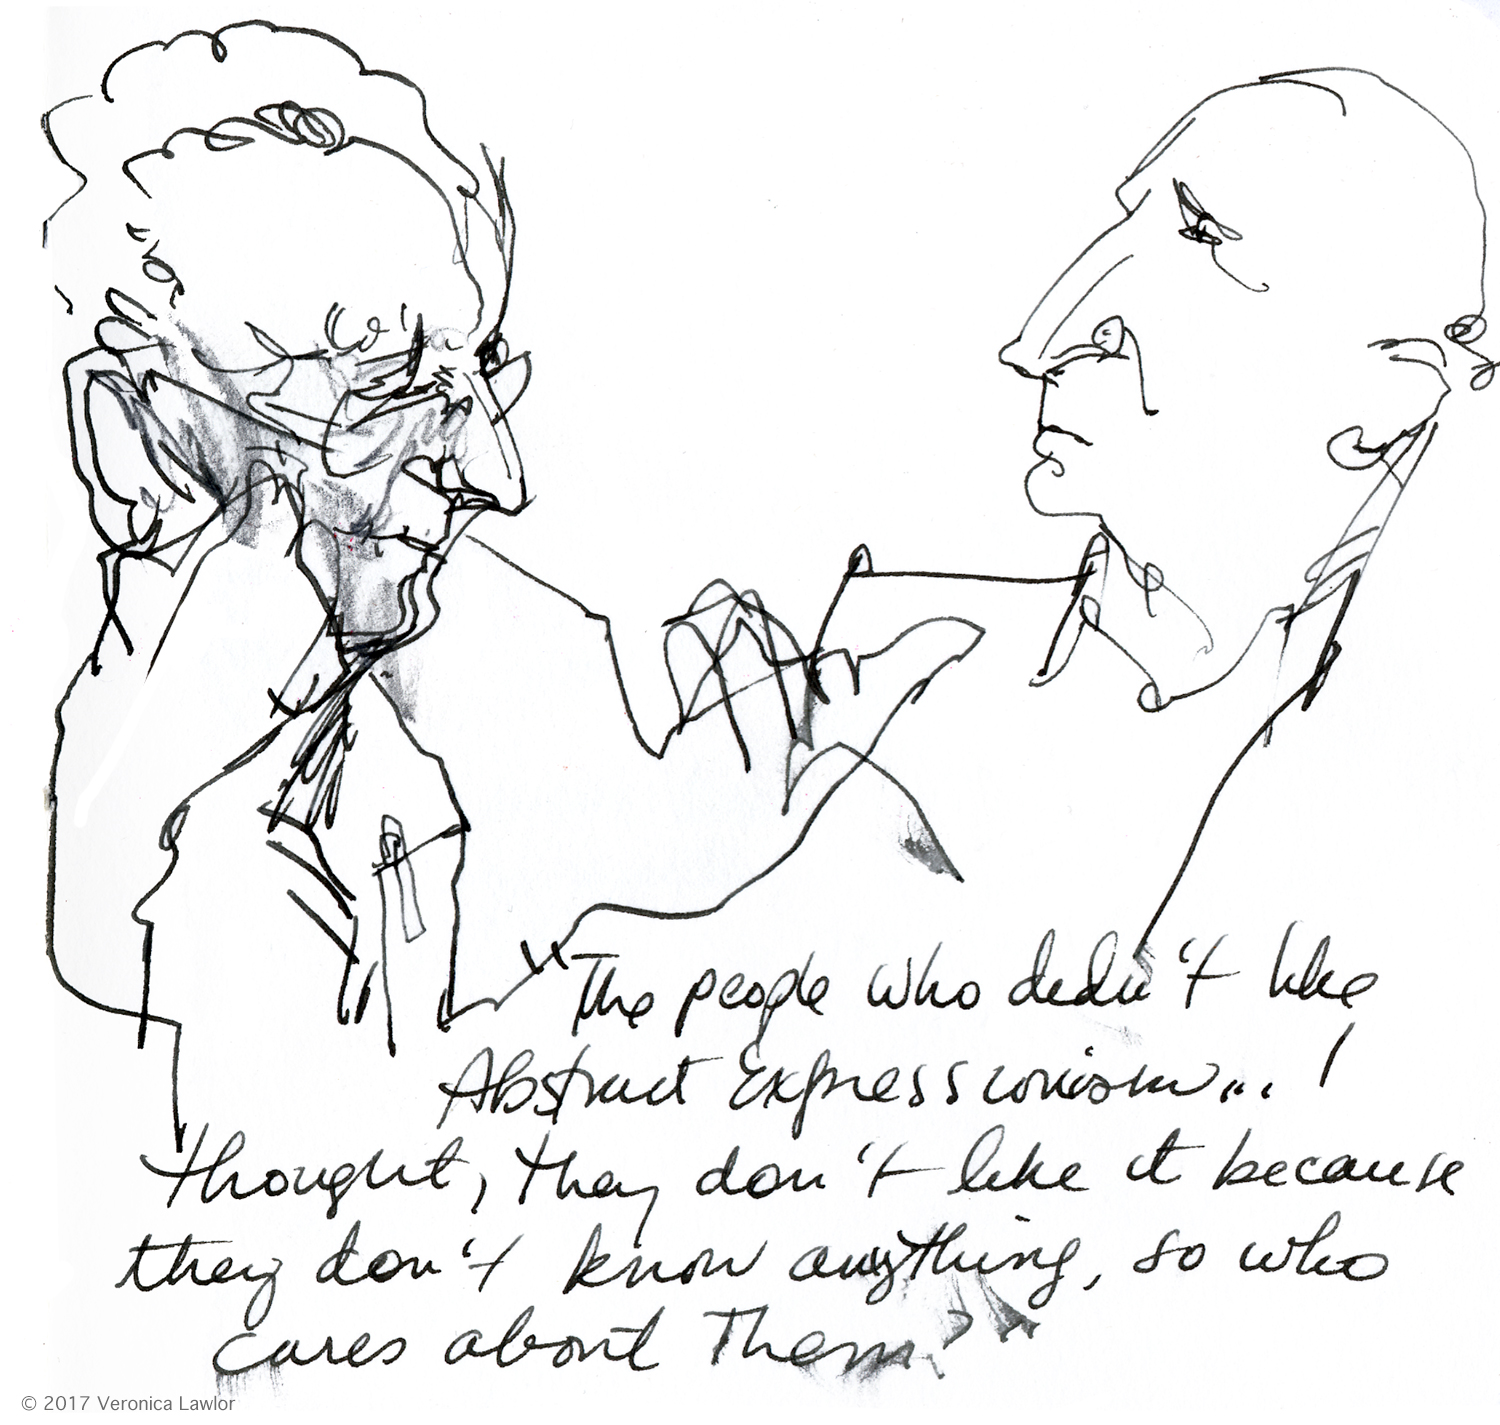 "The people who didn't like
Abstract Expressionism... I
thought, they don't like it because
they don't know anything, so who
cares about them?"
© 2017 Veronica Lawlor